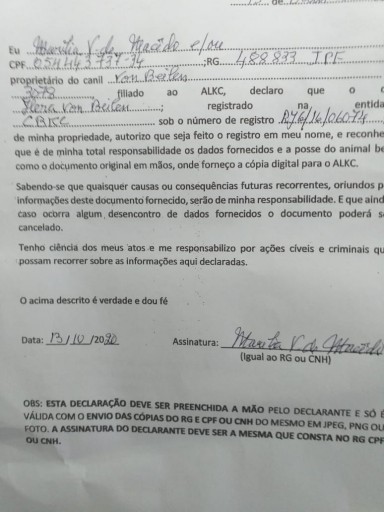 de
Eu Marília V. de Macêdo e/ou
CPF 054443737-94 ;RG 488.833 IPF
proprietário do canil Von Beilen
3073 filiado ao ALKC, declaro que o c
Hera Von Beilen; registrado na entida
CBKC sob o número de registro RJ6/16/06074,
de minha propriedade, autorizo que seja feito o registro em meu nome, e reconhe
que é de minha total responsabilidade os dados fornecidos e a posse do animal be
como o documento original em mãos, onde forneço a cópia digital para o ALKC.
Sabendo-se que quaisquer causas ou consequências futuras recorrentes, oriundos p
informações deste documento fornecido, serão de minha responsabilidade. E que aind
caso ocorra algum desencontro de dados fornecidos o documento poderá s
cancelado.
Tenho ciência dos meus atos e me responsabilizo por ações cíveis e criminais qu
possam recorrer sobre as informações aqui declaradas.
O acima descrito é verdade e dou fé
Data: 13/10/2020 Assinatura: Marília V. de Macêdo
(Igual ao RG ou CNH)
OBS: ESTA DECLARAÇÃO DEVE SER PREENCHIDA A MÃO PELO DECLARANTE E SÓ É
VÁLIDA COM O ENVIO DAS CÓPIAS DO RG E CPF OU CNH DO MESMO EM JPEG, PNG OU
FOTO. A ASSINATURA DO DECLARANTE DEVE SER A MESMA QUE CONSTA NO RG CPF
OU CNH.